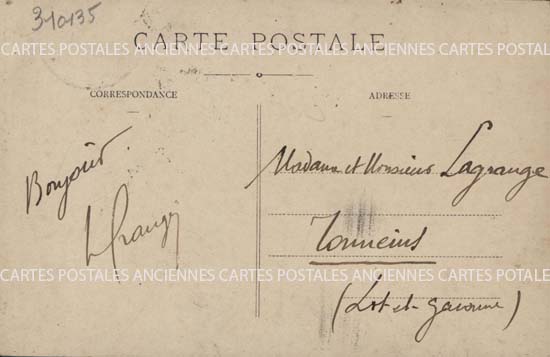 340135
CARTE POSTALE
CARTES POSTALES ANCIENNES CARTES POSTALES ANCIENNES CARTES POSTALES
CORRESPONDANCE
ADRESSE
Bonjour.
Madame et Monsieur Lagrange
Tonneins
CARTES POSTALES ANCIENNES CARTES POSTALES ANCIENNES CARTES POTALES
(Lot-et-Garonne)